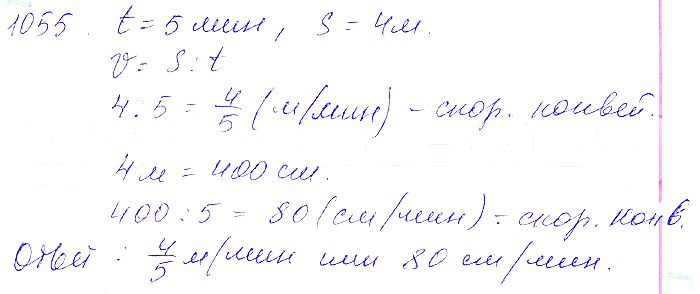 1055. t = 5 мин, S = 4м.
v = S : t
4 : 5 = 4/5 (м/мин) - скор. конвей.
4м = 400 см.
400 : 5 = 80 (см/мин) - скор. конв.
Ответ : 4/5 м/мин или 80 см/мин.